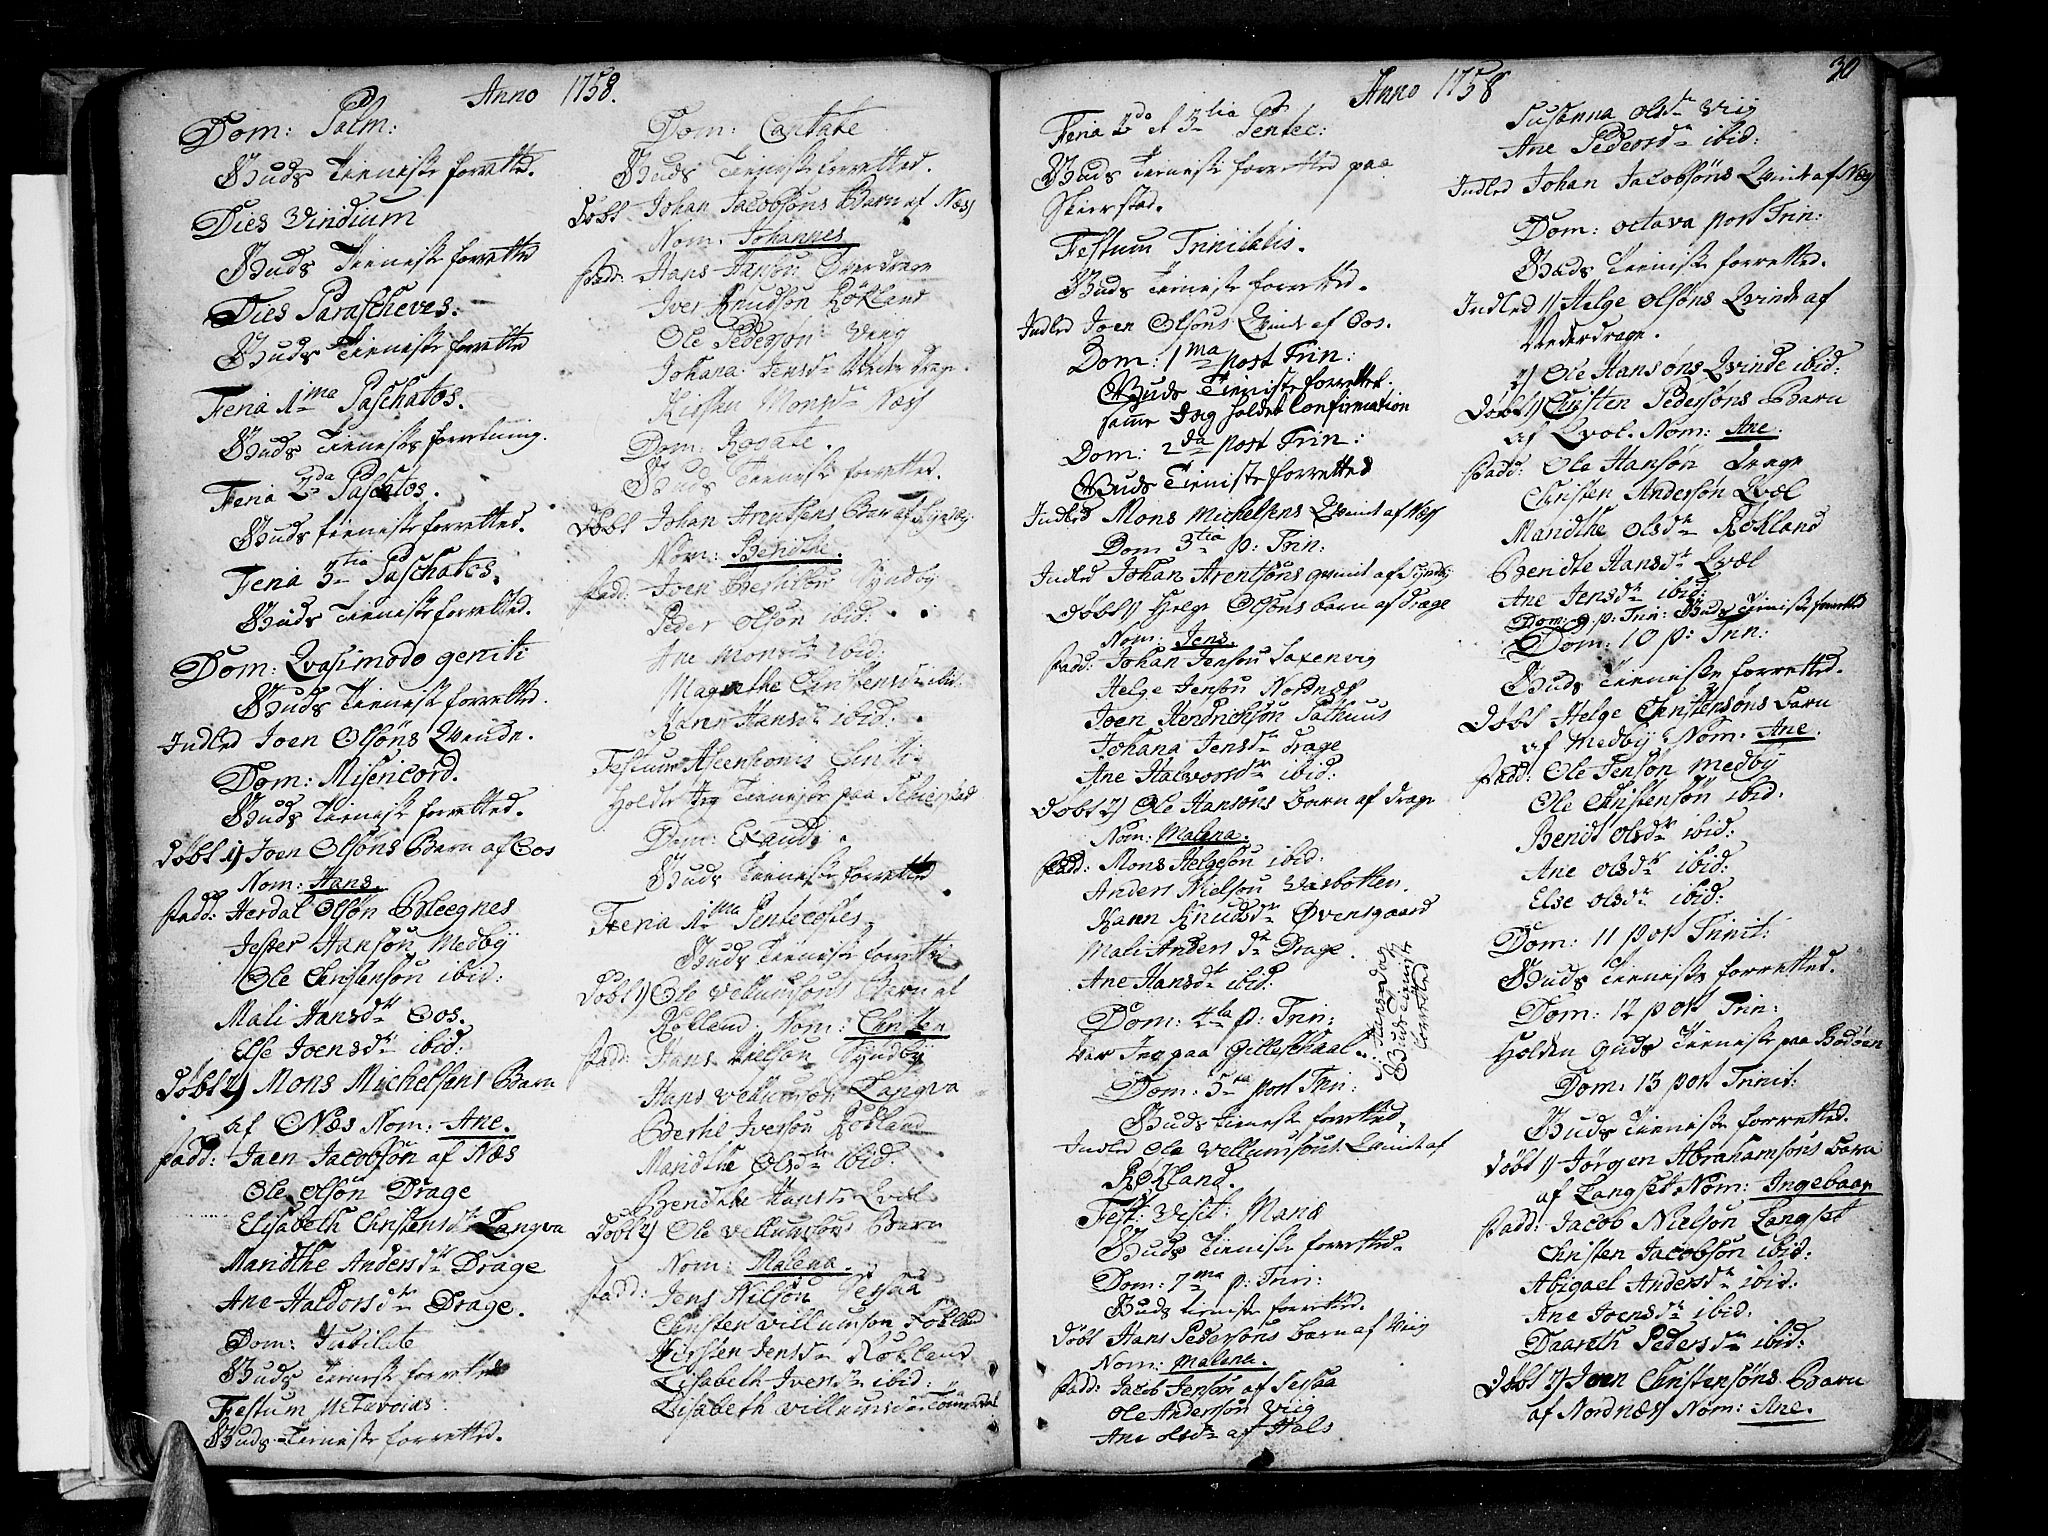 Anno 1758.
Dom: Palm:
Guds Tieneste forretted.
Dies Viridium
Guds Tieneste forretted
Dies Parascheves.
Guds Tieneste forretted
Feria 1ma Paschatos.
Guds Tienestes forretning.
Feria 2da Paschatos.
Guds tieneste forretted.
Feria 3tia Paschatos.
Guds Tieneste forretted.
Dom: Qvasimodo geniti
Guds Tieneste forretted.
Indled Joen Olsöns Qvinde.
Dom: Misericord.
Guds Tieneste forretted.
Döbt 1) Joen Olsöns Barn af Os
Nom: Hans.
fadd: Herdal Olsön Bleegnes
Jesper Hansön Medby
Ole Christensön ibid:
Mali Hansdtr Os.
Else Joensdtr ibid:
Döbt 2) Mons Michelsens Barn
af Næs Nom: Ane.
fadd: Jaen Jacobsön af Næs
Ole Olsön Drage
Elisabeth Christensdtr Langva
Maridthe Andersdtr Drage
Ane Haldorsdtr Drage.
Dom: Jubilate
Guds Tieneste forretted
Festum
Guds Tieneste forretted.
Dom: Cantate
Guds Tieneste forretted.
Döbt Johan Jacobsöns Barn af Næss
Nom: Johannes
fadd: Hans Hansön Överdrage
Iver Knudsön Rökland
Ole Pedersön Viig
Johana Jensdtr Nederdrage.
Kirsten Monsdtr Næss
Dom: Rogate.
Guds Tieneste forretted.
Döbt Johan Arentsens Barn af Syndby
Nom: Beridthe.
fadd: Joen Syndby
Peder Olsön ibid:
Ane Monsdtr ibid:
Magrethe Christensdtr ibid:
Karen Hansdtr ibid:
Festum Ascentionis Christi
Holdte Jeg Tieneste paa Schierstad
Dom: Exaudi.
Guds Tieneste forretted
Feria 1ma Pentecostes
Guds Tieneste forretted
Döbt 1) Ole Vellumsöns Barn af
Rökland Nom: Christen
fadd: Hans Nielsön Syndby
Hans Vellumsön Langva
Berthel Iversön Rökland
Maridthe Olsdtr ibid:
Bendthe Hansdtr Qvæl
Döbt 2) Ole Vellumsöns Barn
Nom: Malena.
fadd: Jens Nilsön Sessaa
Christen Villumsön Rökland
Kirsten Jensdtr Rökland
Lisabeth Iversdtr ibid:
Lisabeth Villumsdtr
Anno 1758
30
Feria 2da et 3tia Pentec:
Guds Tieneste forretted paa
Skierstad.
Festum Trinitatis.
Guds Tieneste forretted.
Indled Joen Olsöns Qvinde af Os.
Dom: 1ma post Trin:
Guds Tieniste forretted.
samme Dag holdet Confirmation
Dom: 2da post Trin:
Guds Tieniste forretted
Indled Mons Michelsens Qvinde af Næss
Dom 3tia p: Trin:
Indled Johan Arentsöns qvinde af Syndby
Döbt 1) Helge Olsöns barn af Drage
Nom: Jens.
fadd: Johan Jensön Saxenvig
Helge Jensön Nordnæs
Joen Hendrichsön Pothuus
Johana Jensdtr Drage
Ane Halvorsdtr ibid:
Döbt 2) Ole Hansöns barn af Drage
Nom: Malena.
fadd: Mons Helgesön ibid:
Anders Nielsön Vasbotten.
Karen Knudsdtr Övensgaard
Mali Andersdtr Drage.
Ane Hansdtr ibid:
Dom: 4ta p: Trin:
Var Jeg paa Gilleschaal.
St: Hans Dag
Guds Tieniste
forretted
Dom: 5ta post Trin:
Guds Tieneste forretted.
Indled Ole Vellumsöns Qvinde af
Rökland.
Fest: Visit: Mariæ
Guds Tieneste forretted.
Dom: 7ma p: Trin:
Guds tieneste forretted.
Döbt Hans Pedersöns barn af Viig
Nom: Malena.
fadd: Jacob Jensön af Sessaa
Ole Andersön Viig
Ane Olsdtr af Hals
Susanna Olsdtr Viig
Ane Pedersdtr ibid:
Indled Johan Jacobsöns Qvinde af Næss
Dom: octava post Trin:
Guds Tieneste forretted.
Indled 1) Helge Olsöns Qvinde af
Nederdrage.
2) Ole Hansöns Qvinde ibid:
Döbt 1) Christen Pedersöns Barn
af Qvol. Nom: Ane.
fadd: Ole Hansön Drage
Christen Andersön Qvæl
Maridthe Olsdtr Rökland
Bendte Hansdtr Qvæl
Ane Jensdtr ibid:
Dom: 9 p: Trin: Guds Tieneste forretted
Dom: 10 p: Trin:
Guds Tieneste forretted.
Döbt Helge Christensöns barn
af Medby Nom: Ane.
fadd: Ole Jensön Medby
Ole Christensön ibid:
Beridt Olsdtr ibid:
Ane Olsdtr ibid:
Else Olsdtr ibid:
Dom: 11 post Trinit:
Guds Tieneste forretted.
Dom: 12 post Trin:
Holden Guds Tieneste paa Bodöen
Dom: 13 post Trinit:
Guds Tieneste forretted.
Döbt 1) Jörgen Abrahamsöns barn
af Langset Nom: Ingebaar
fadd: Jacob Nielsön Langset
Christen Jacobsön ibid:
Abigael Andersdtr ibid:
Ane Joensdtr ibid:
Daareth Pedersdtr ibid:
Döbt 2) Joen Christensöns Barn
af Nordnæss Nom: Ane.